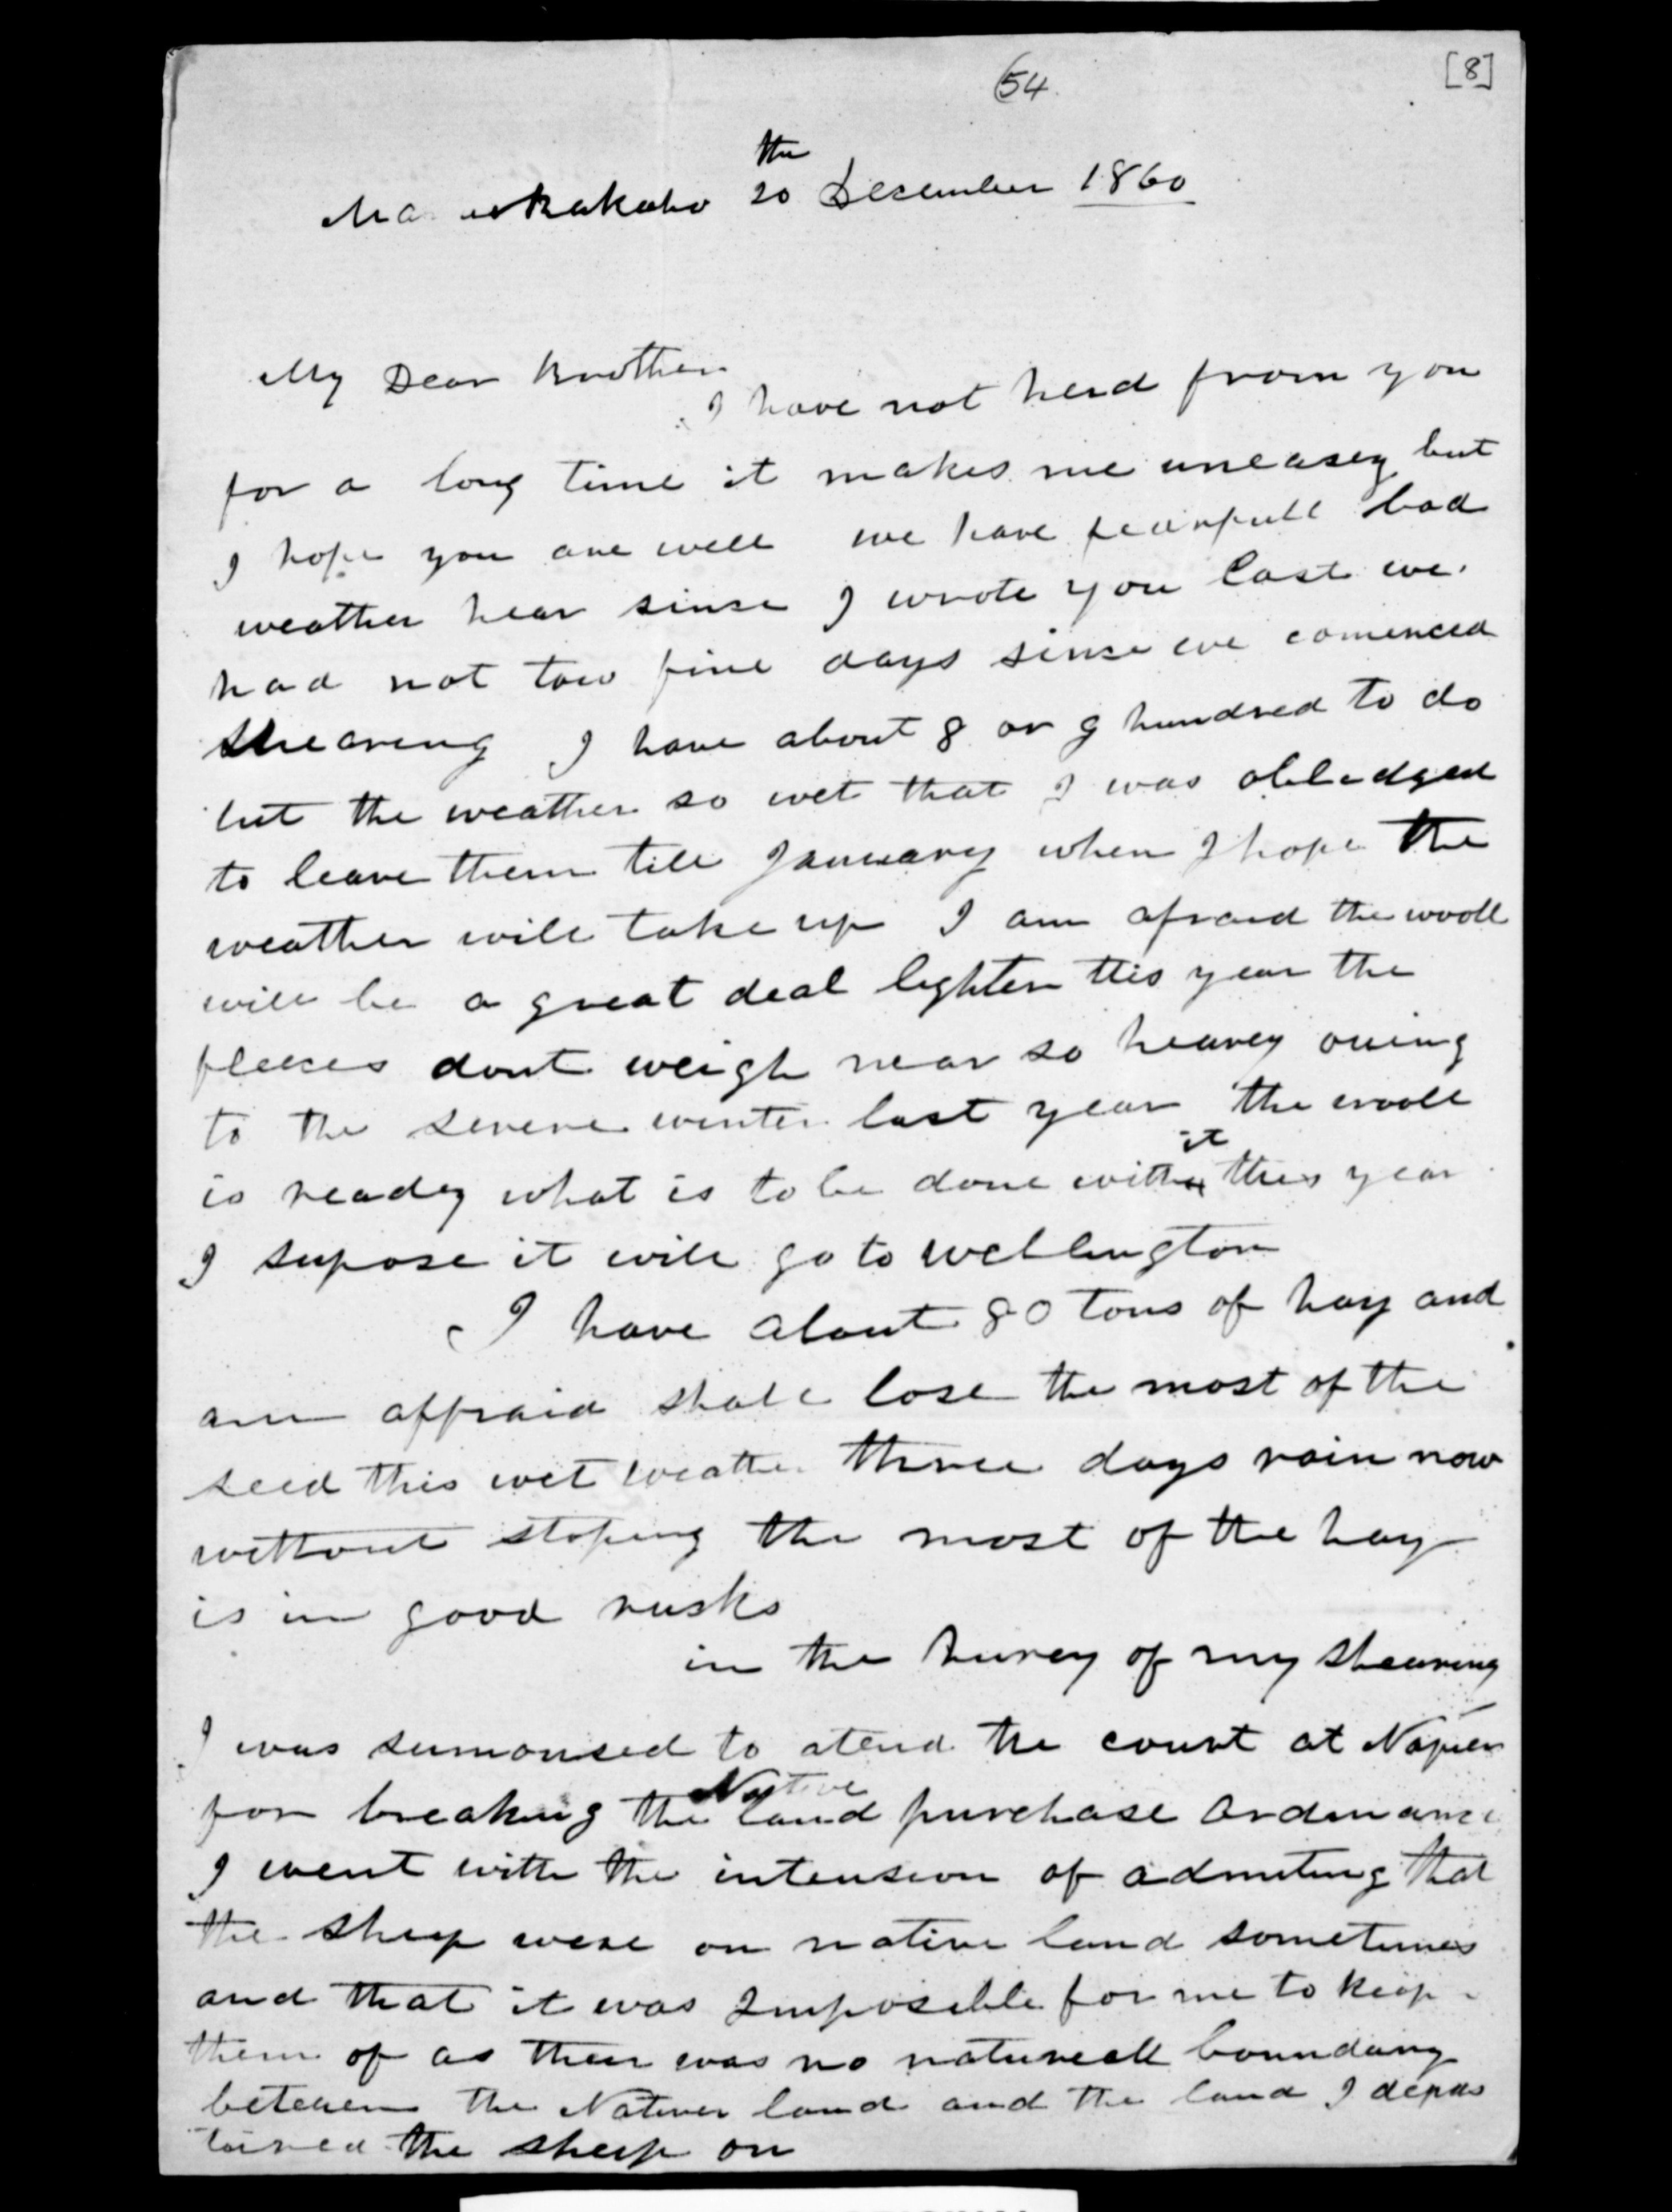 54.
[8]
the
20 December 1860
My Dear Brother
I have not herd from you
for a long time it makes me uneasey but
I hope you are well we have fearfull bad
weather hear sinse I wrote you last we
had not tow fine days sinse we comenced
sheareng I have about 8 or 9 hundred to do
but the weather so wet that I was obledged
to leave them till January when I hope the
weather will take up I am afraid the wooll
will be a great deal lighter this year the
fleeces dont weigh near so heavey owing
to the severe winter last year the wooll
it
is ready what is to be done with this year
I supose it will go to Wellington
I have about 80 tons of hay and
am affraid shall lose the most of the
seed this wet weather three days rain now
without stoping the most of the hay
is in good rusks
in the hurey of my shearing
I was sumonsed to atend the court at Napier
Native
for breaking the land purchase Ordinance
I went with the intension of admiting that
the sheep were on native land sometimes
and that it was Imposible for me to keep
them of as their was no natureall boundary
between the Natives land and the land I depas
tured the sheep on